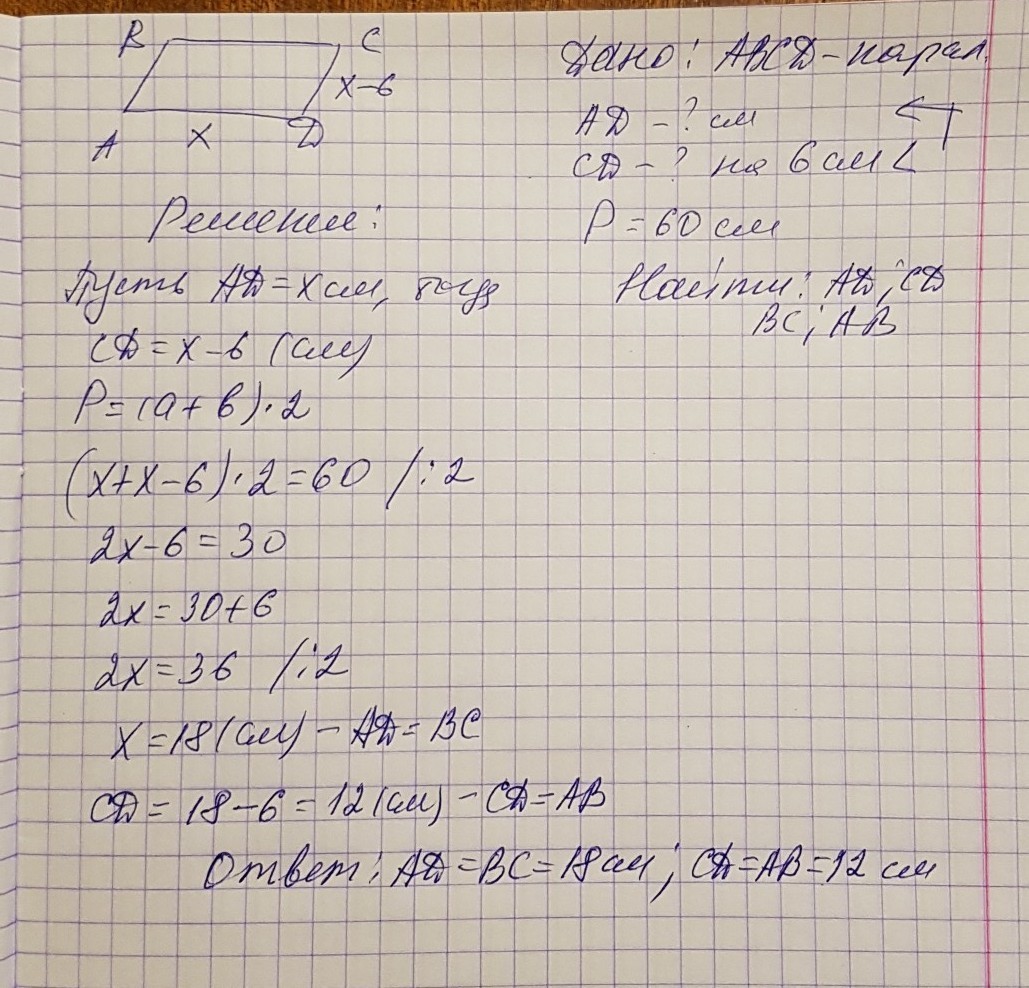 B C
x-6
A x D
Дано: ABCD-парал.
AD - ? см
CD - ? на 6 см <
P = 60 см
Найти: AD; CD
BC; AB
Решение:
Пусть AD = x см, тогда
CD = x-6 (см)
P = (a+b)·2
(x+x-6)·2=60 /:2
2x-6=30
2x=30+6
2x=36 /:2
x=18 (см) - AD=BC
CD = 18-6=12 (см) - CD=AB
Ответ: AD=BC=18см; CD=AB=12 см